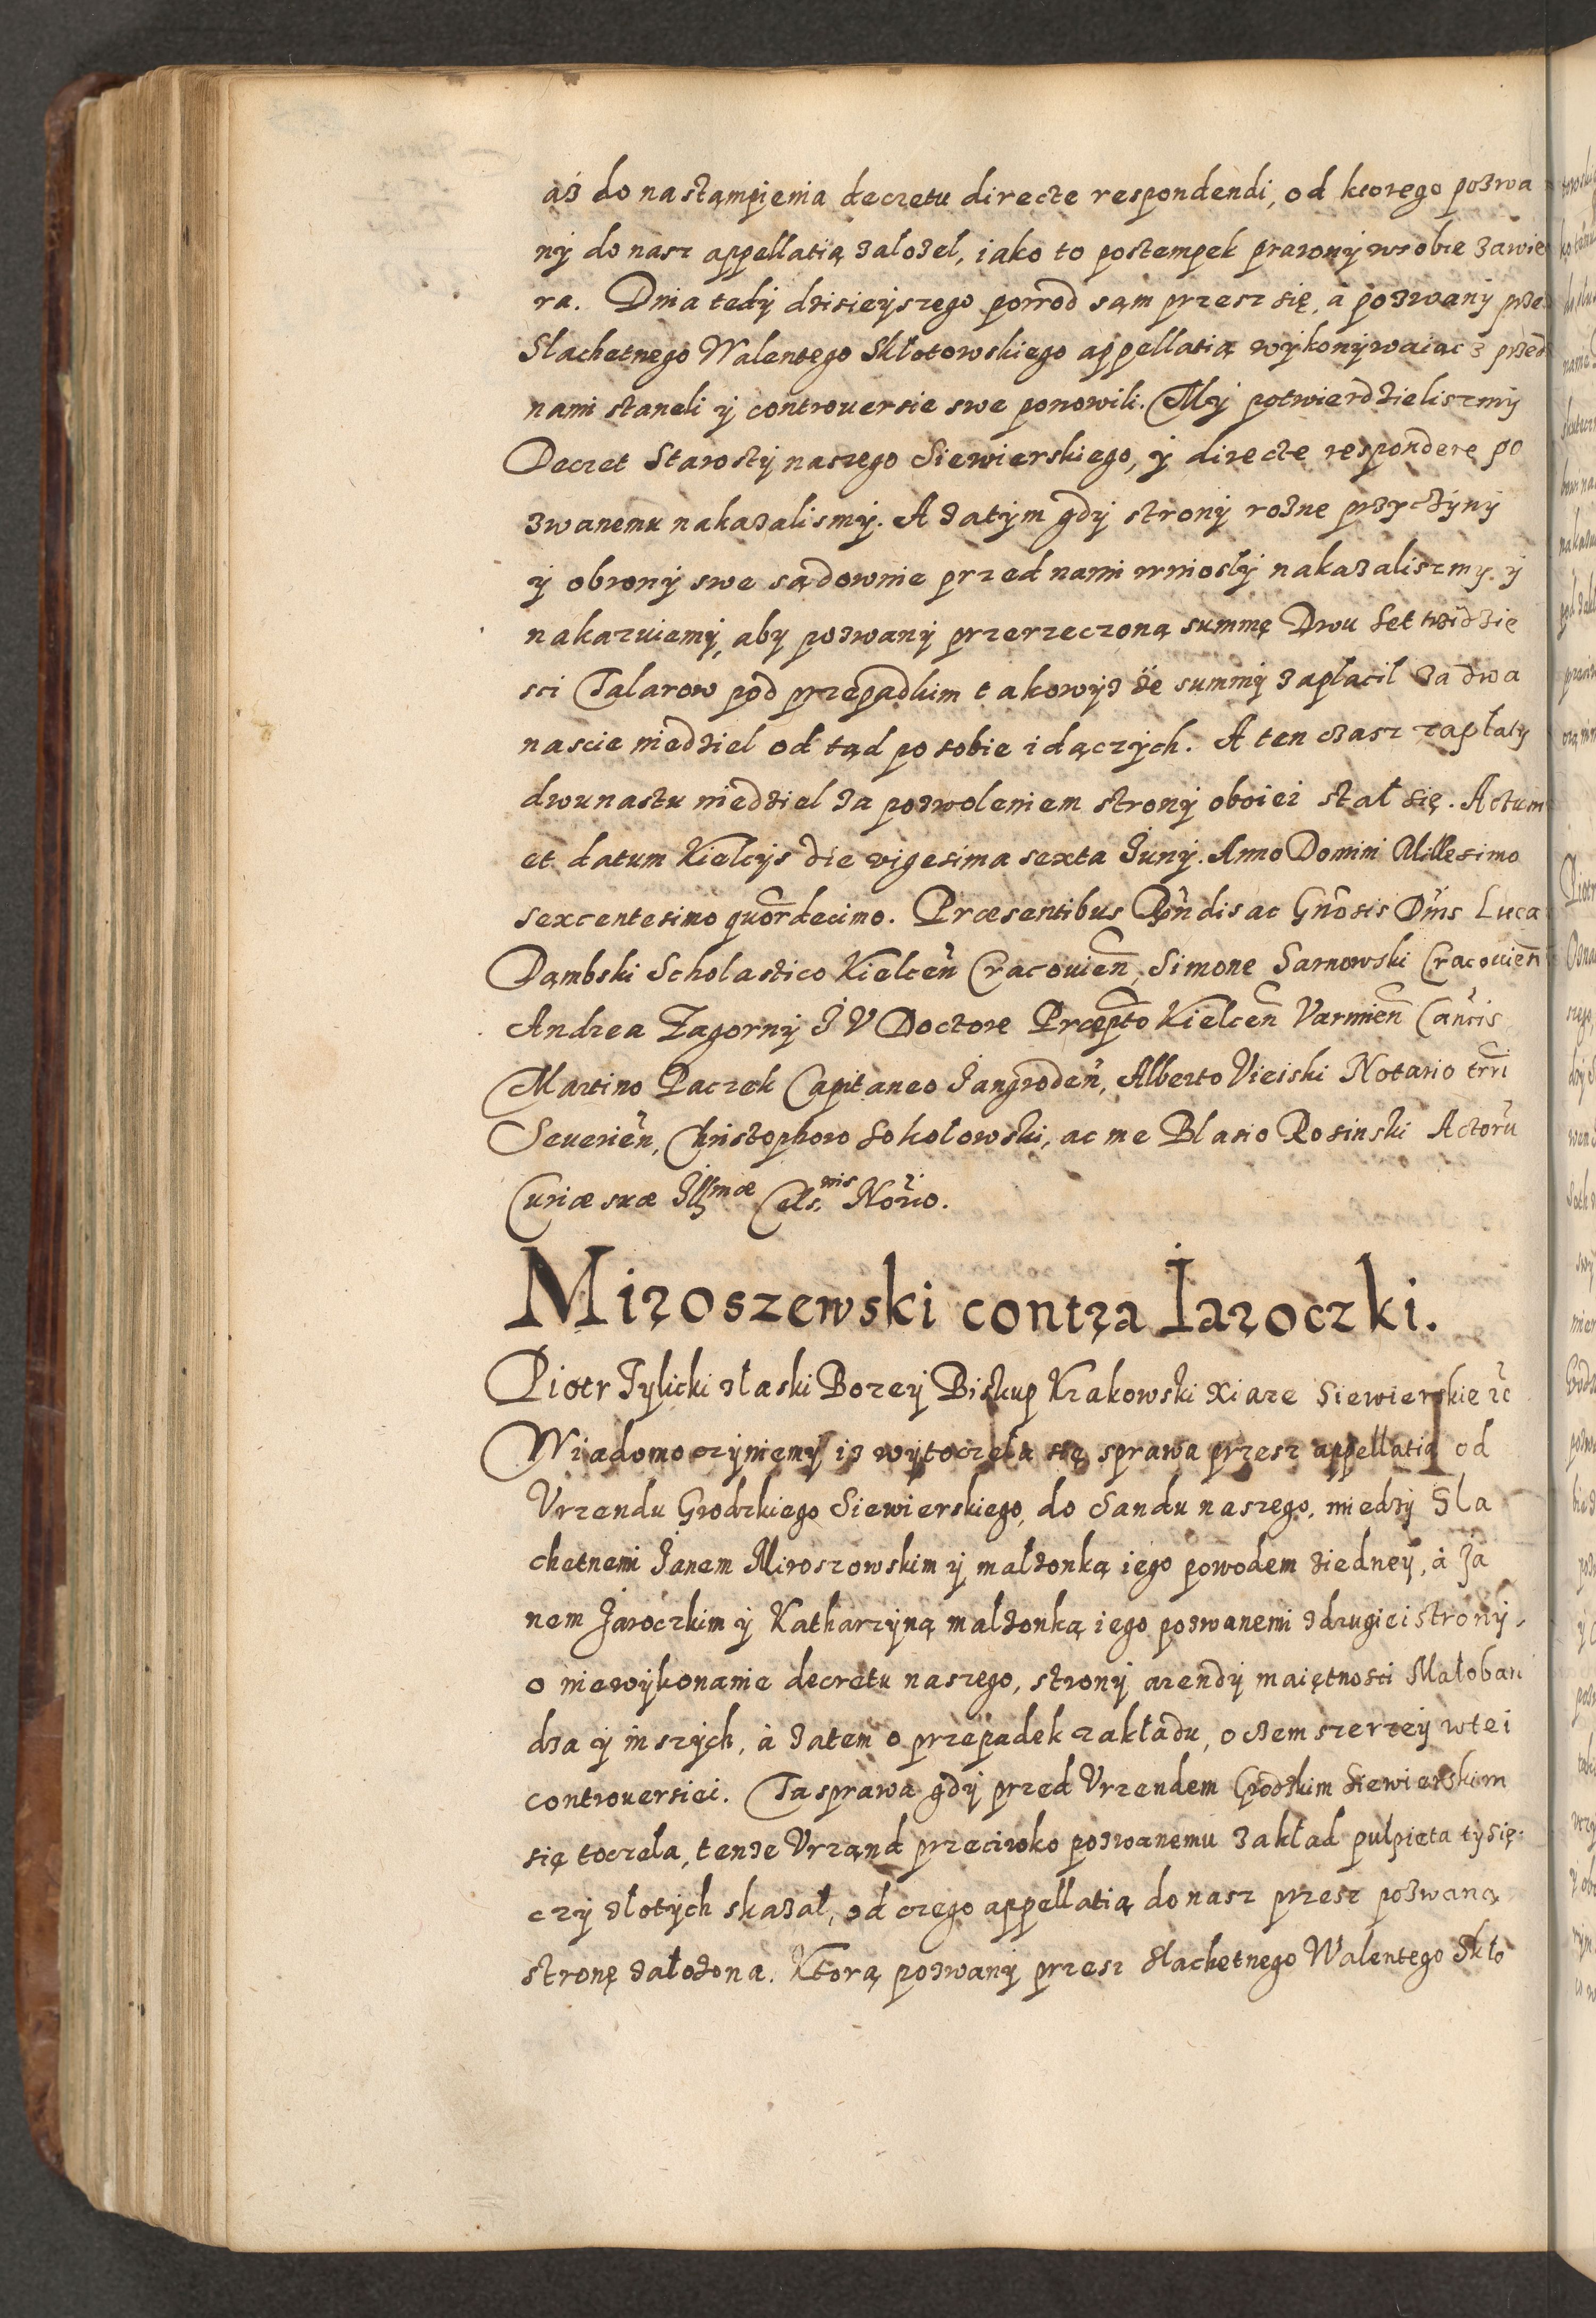 aż do nastąmpienia decretu directe respondendi, od ktorego pozwa
ny do nasz appellatią założeł, iako to postempek prawny w sobie zawie
ra. Dnia tedy dzisieyszego powod sąm przesz się, a pozwany prze
Slachetnego Walentego Skłotowskiego appellatią wykonywaiacz przed
nami staneli y controuersie swe ponowili. My potwierdzieliszmy
Decret Starosty naszego Siewierskiego, y directe respondere po
zwanemu nakazalismy. A zatym gdy strony rozne przyczyny
y obrony swe sądownie przed nami wniosły nakazaliszmy y
nakazuiemy, aby pozwany przerzeczoną summę Dwu Set trzidzie
sci Talarow pod przepadkim takowyż że summy zapłacil za dwa
nascie niedziel od tąd po sobie idączych. A ten czasz zapłaty
dwunastu niedziel za pozwoleniem strony oboiei stał się. Actum
et datum Kielcys die vigesima sexta Juny. Anno Domini Millesimo
sexcentesimo quordecimo. Præsentibus Rndis ac Gnosis Dnis Luca
Dąmbski Scholastico Kielcen Cracouien, Simone Sarnowski Cracouien
Andrea Zagorny J V Doctore Præpto Kielcen Varmien Cancis
Martino Paczek Capitaneo Jangroden, Alberto Vieiski Notario trri
Seuerien, Christophoro Sokołowski, ac me Blasio Rosinski Actoru
Curiæ suæ Illmæ Cels. nis Norio.
Miroszewski contra Jaroczki.
Piotr Tylicki z łaski Bozey Biskup Krakowski Xiaze Siewierskie &c
Wiadomo czyniemy iz wytoczeła się sprawa przesz appellatią od
Vrzendu Grodzkiego Siewierskiego, do Sandu naszego, miedzy Sla
chetnemi Janem Miroszowskim y małzonką iego powodem ziedney, a Ja
nem Jaroczkim y Katharzyną małzonką iego pozwanemi z drugiei strony,
o niewykonanie decretu naszego, strony arendy maiętnosci Małoban
dza y inszych, a zatem o przepadek zakładu, o czem szerzey w tei
controuersiei. Ta sprawa gdy przed Vrzendem Grodzkim Siewierskim
się toczela, tenze Vrząnd przeciwko pozwanemu zakład pułpieta tysię:
czy złotych skazał, od czego appellatią do nasz przesz pozwaną
stronę załozona. Ktorą pozwany przesz Slachetnego Walentego Skło